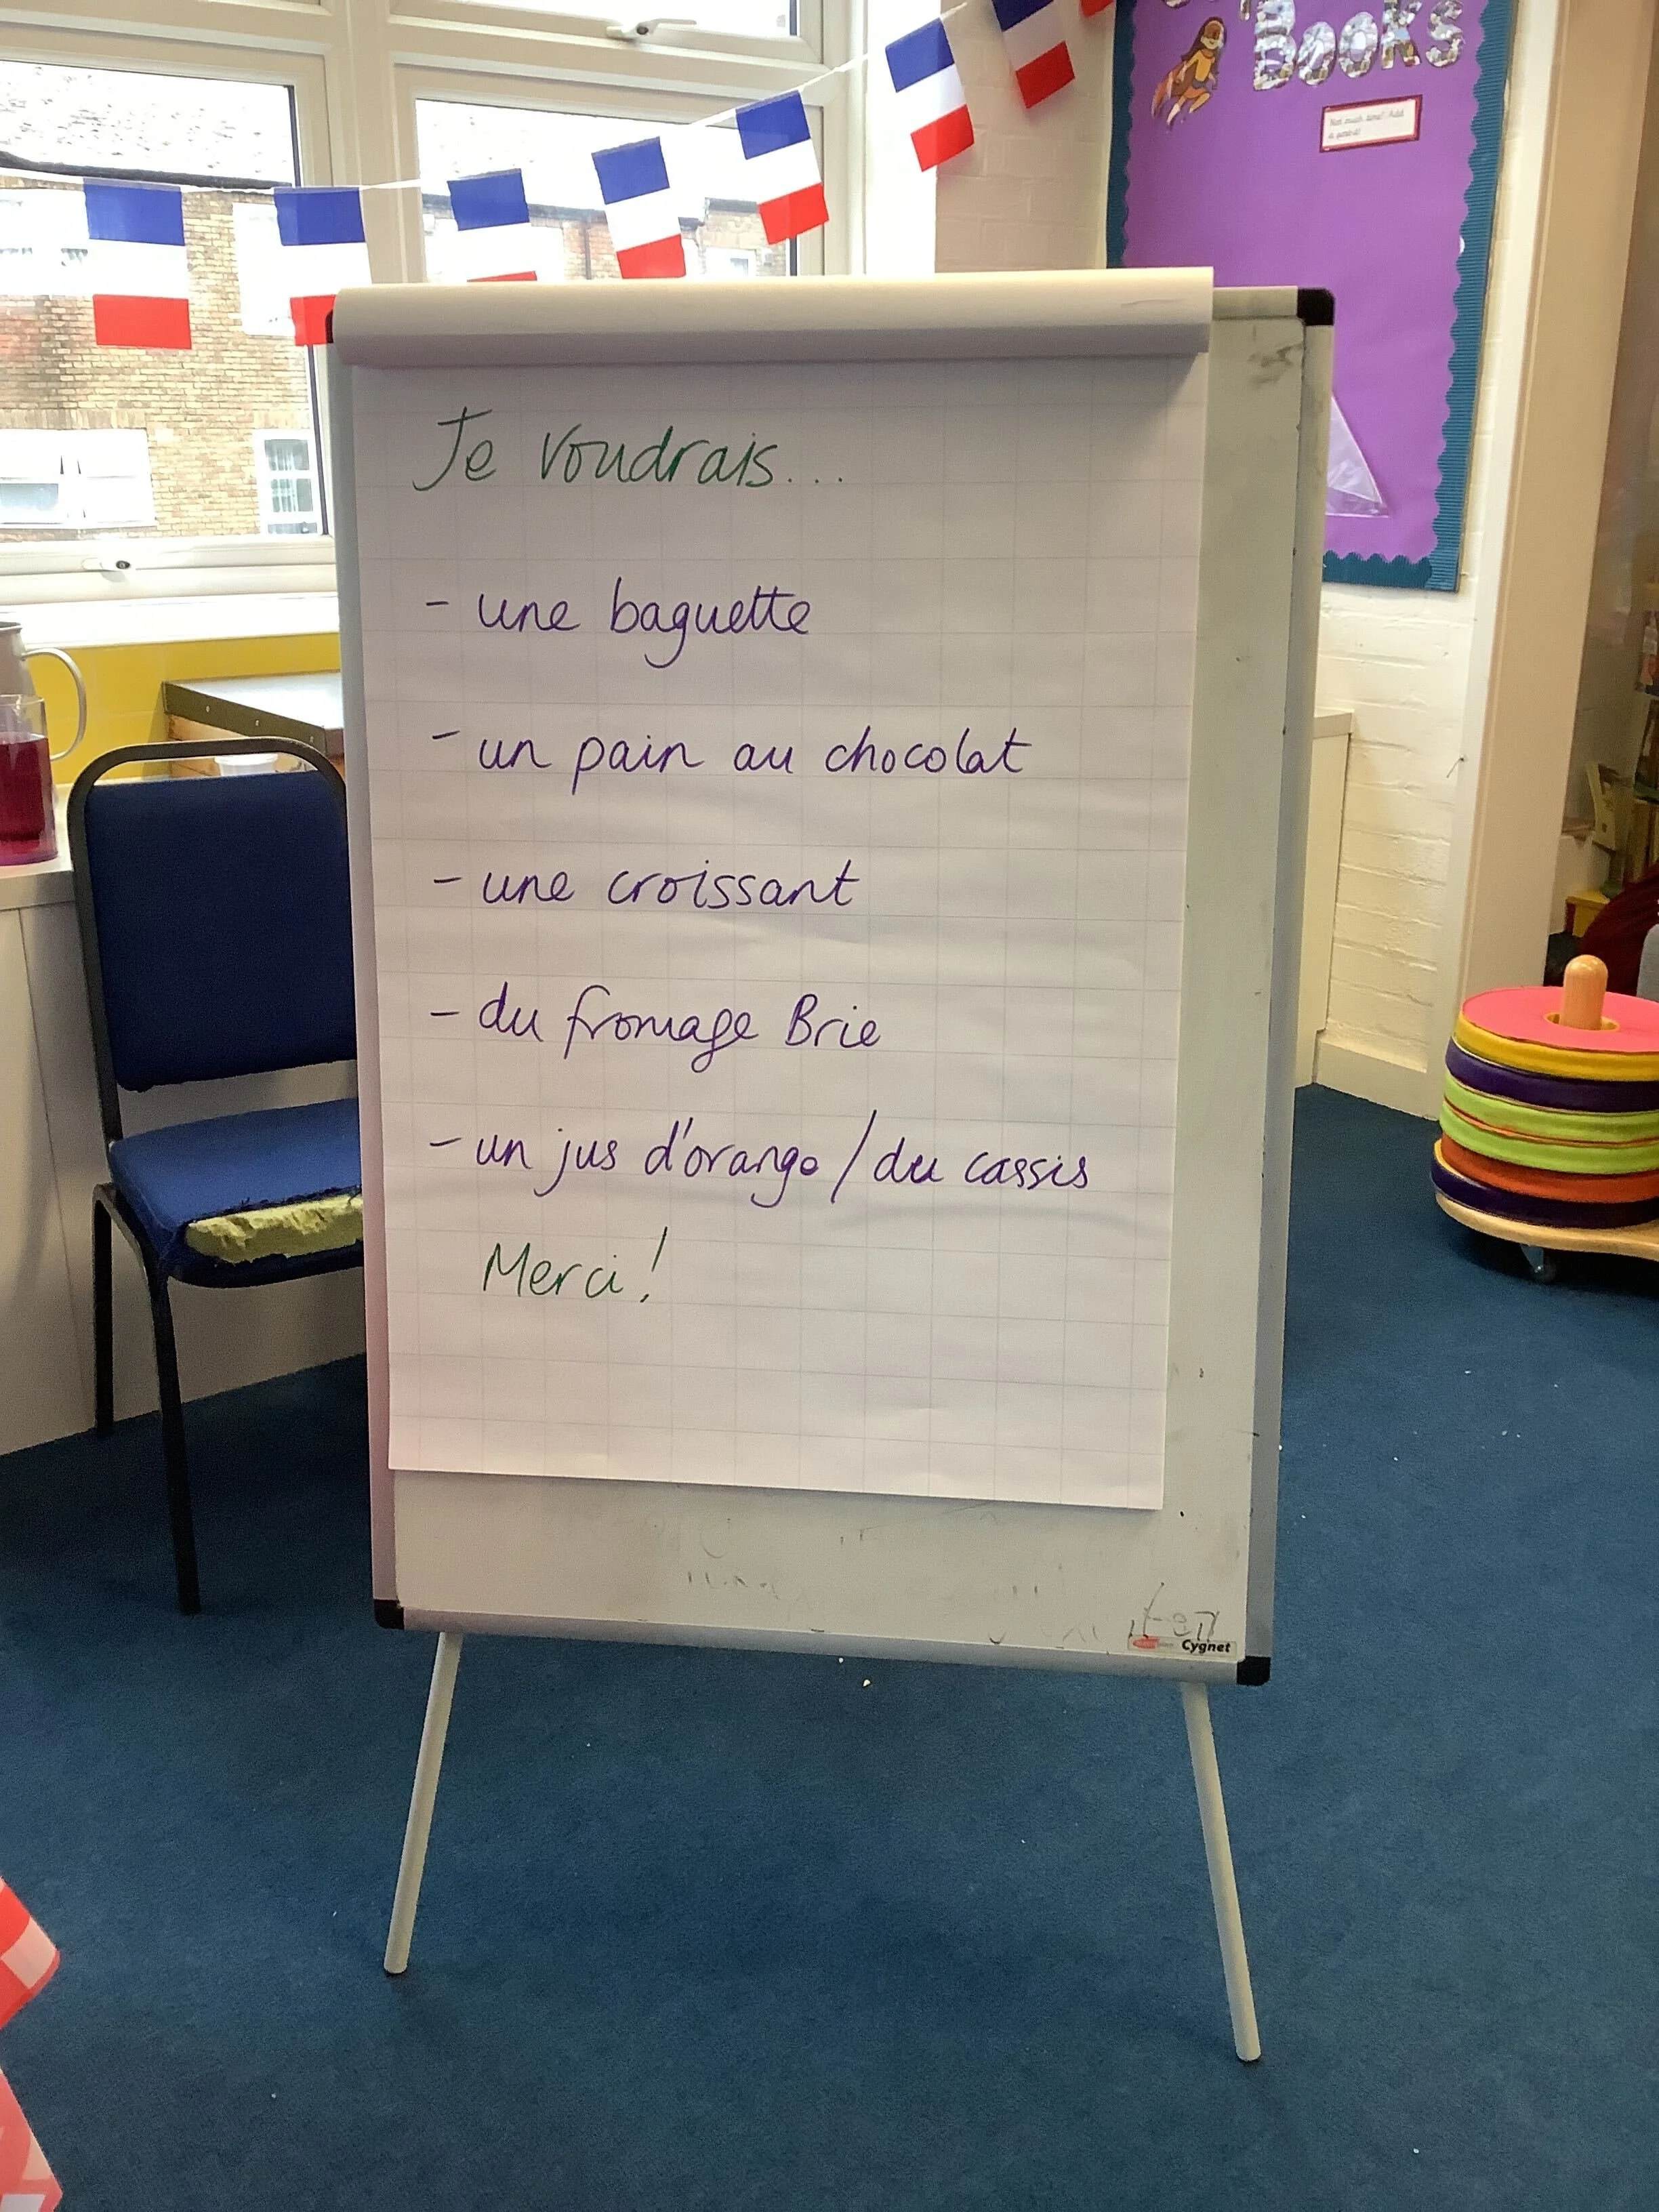 Books
Not much time? Add
a period!
Je voudrais...
- une baguette
- un pain au chocolat
- une croissant
- du fromage Brie
- un jus d'orange / du cassis
Merci!
Cygnet